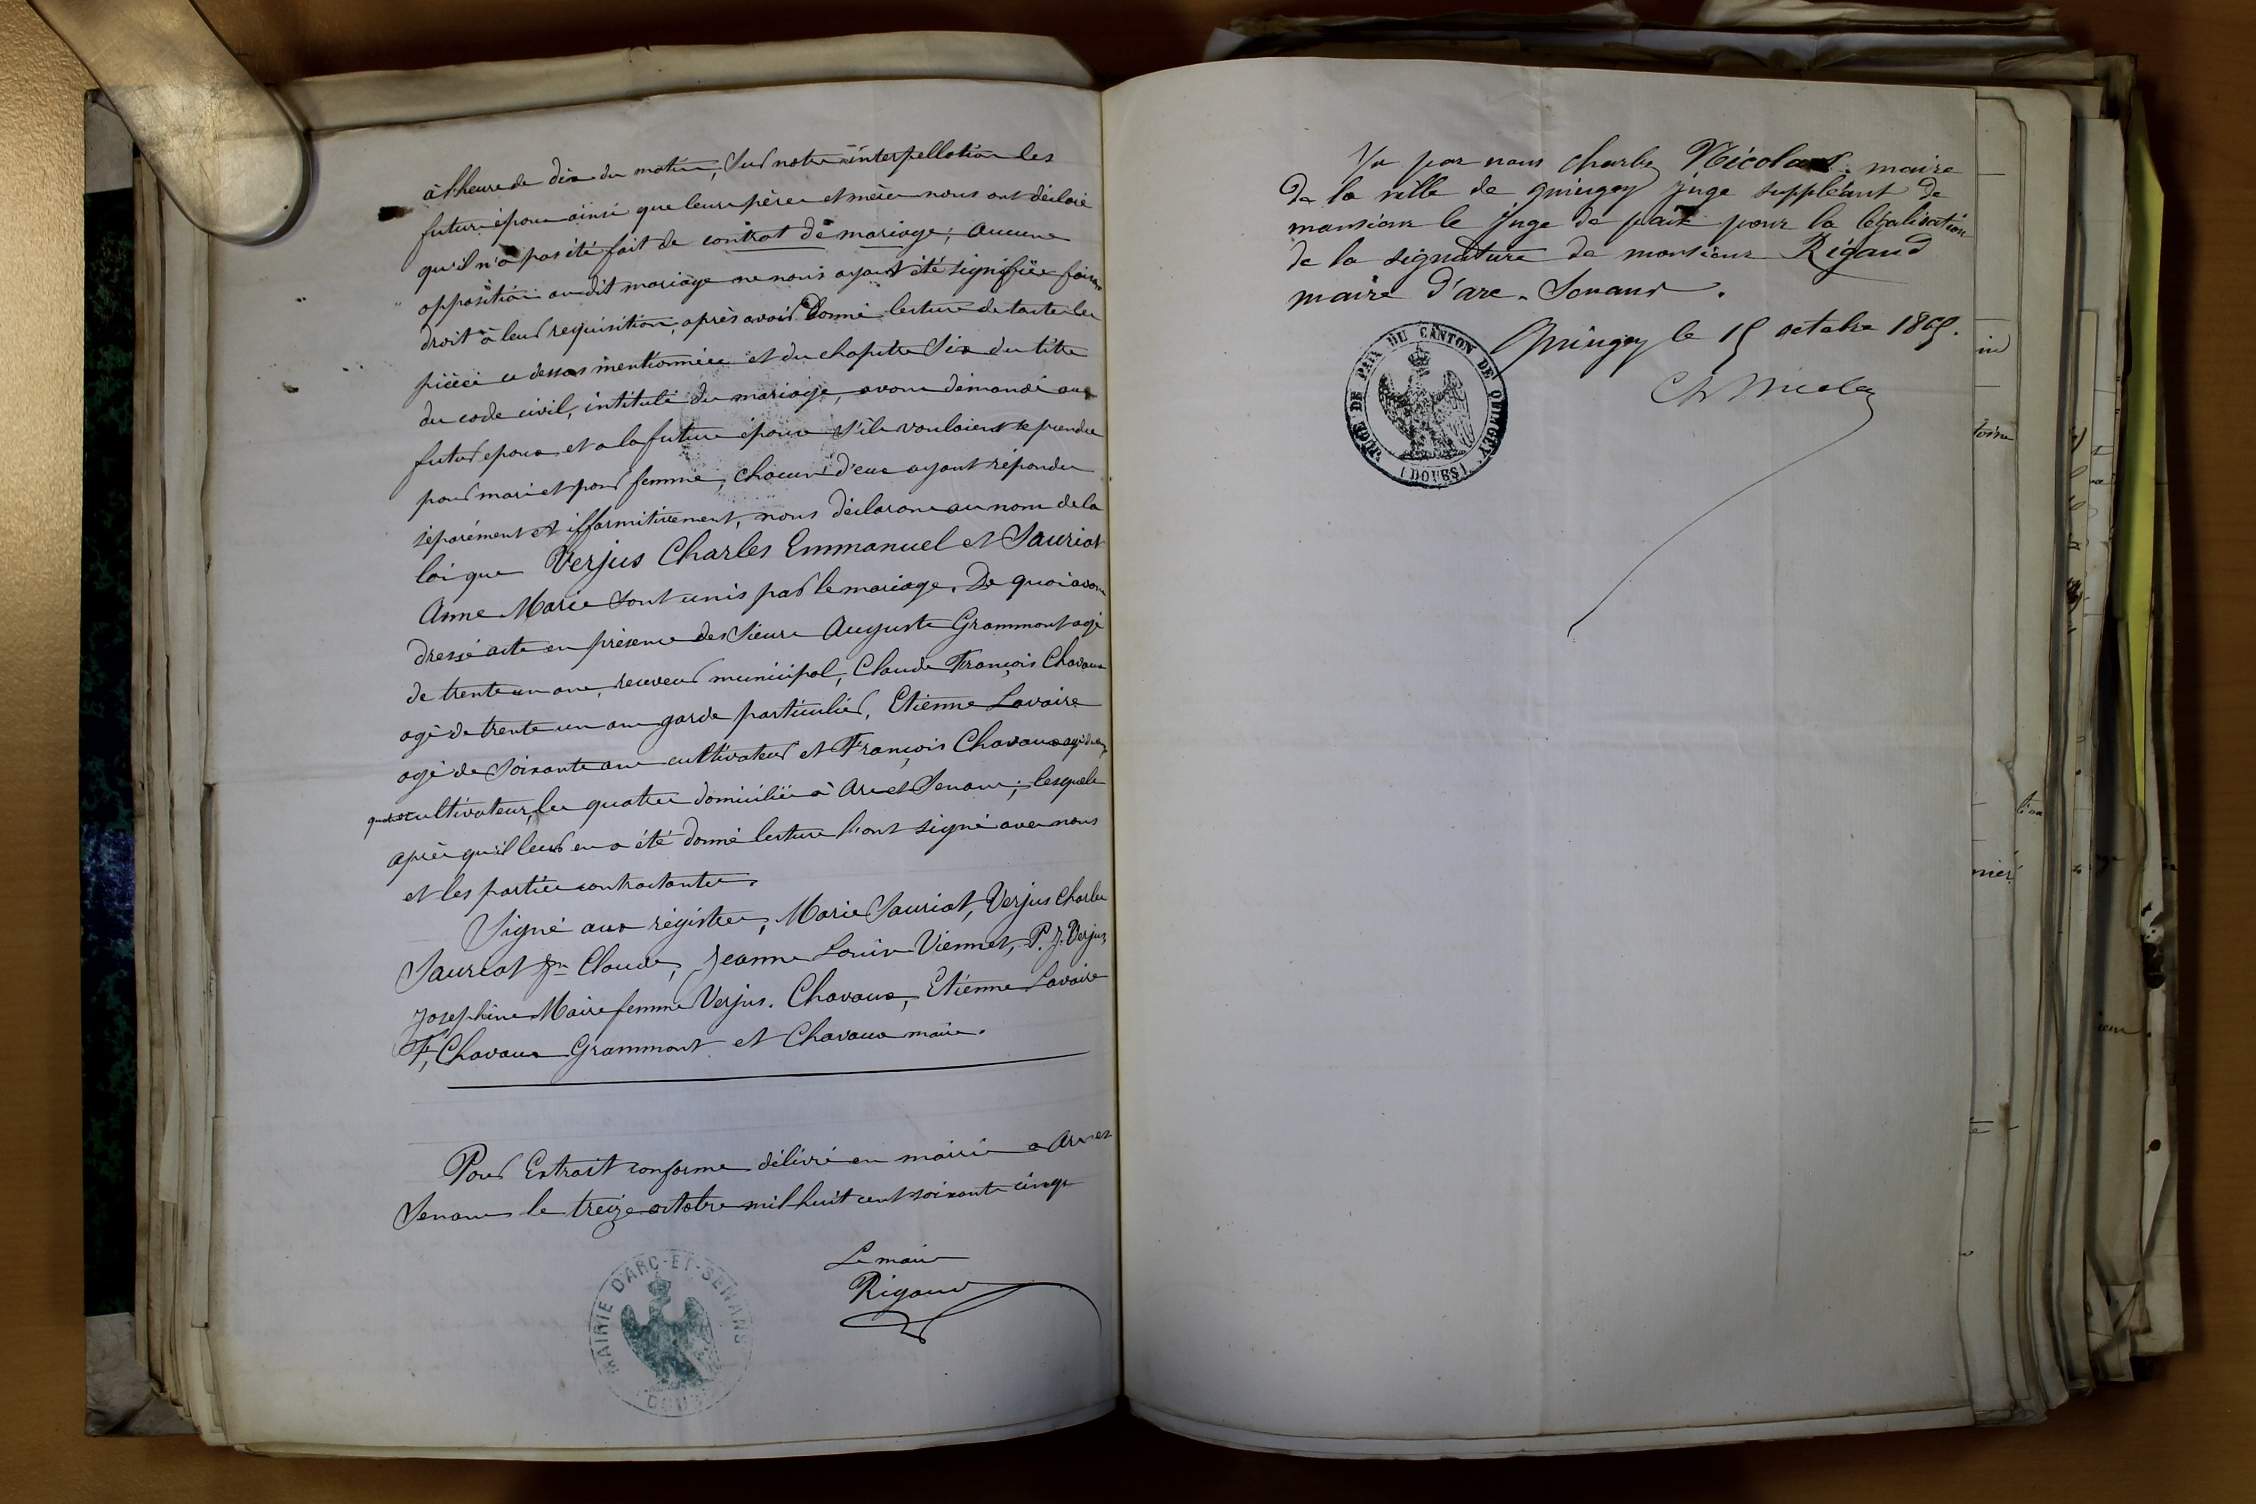 à l'heure de dix du matin, Sur notre interpellation les
futurs époux ainsi que leurs pères et mères nous ont déclaré
qu'il n'a pas été fait de contrat de mariage; Aucune
opposition au dit mariage ne nous ayant été signifiée faisant
droit à leur requisition, après avoir donné lecture de toutes les
pièces ci dessus mentionnées et du chapitre Six du titre
du code civil, intitulé du mariage, avons demandé aux
futur epoux et a la future épouse s'ils voulaient se prendre
pour mari et pour femme, chacun d'eux ayant répondu
séparément et affirmitivement, nous déclarons au nom de la
loi que Verjus Charles Emmanuel et Sauriat
Anne Marie sont unis par le mariage. De quoi avons
dressé acte en présence des Sieurs Auguste Grammont agé
de trente un ans, receveur municipal, Claude François Chavaux
agé de trente un ans garde particulier, Etienne Lavaire
agé de soixante ans cultivateur et François Chavaux agé de
cultivateur, les quatre domiciliés à Arc et Senans; lesquels
après qu'il leur en a été donné lecture l'ont signé avec nous
et les parties contractantes.
Signé aux régistres, Marie Sauriat, Verjus Charles
Sauriat Jn Claude, Jeanne Louise Viennet, P. J. Verjus,
Josephine Maire femme Verjus. Chavaux, Etienne Lavaire
F, Chavaux Grammont et Chavaux maire.
Pour Extrait conforme délivré en mairie a Arc et
Senans le treize octobre mil huit cent soixante cinq
Le maire
Rigaud
MAIRIE D'ARC-ET-SENANS
DOUBS
Vu par nous Charles Nicolas maire
de la ville de quingey juge suppléant de
monsieur le Juge de paix pour la légalisation
de la signature de monsieur Régaud
maire d'arc-Senans.
Quingey le 15 octobre 1865.
JUGE DE PAIX DU CANTON DE QUINGEY
(DOUBS)
Ch Nicolas